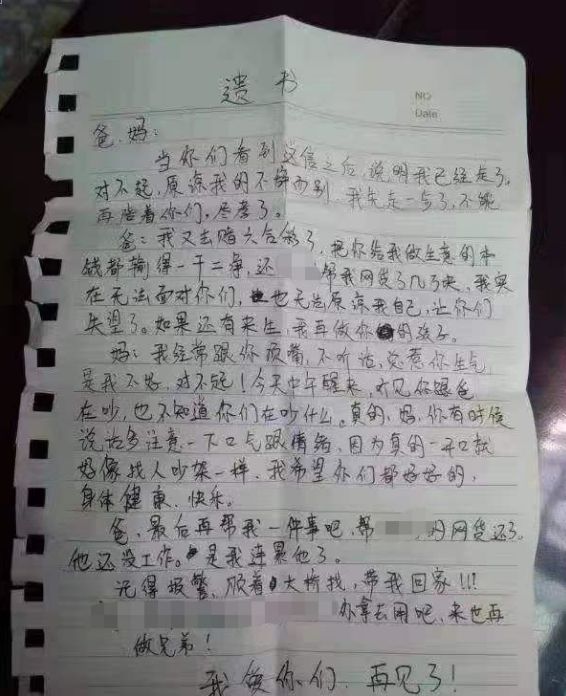 遗书
NO
Date
爸、妈：
当你们看到这信之后，说明我已经走了，
对不起，原谅我的不辞而别，我先走一步了，不能
再陪着你们，尽孝了。
爸：我又去赌六合彩了，把你给我做生意的本
钱都输得一干二净，还 帮我网贷了几万块，我实
在无法面对你们，也无法原谅我自己，让你们
失望了。如果还有来生，我再做你的孩子。
妈：我经常跟你顶嘴，不听话，总惹你生气，
是我不好，对不起！今天中午醒来，听见你跟爸
在吵，也不知道你们在吵什么。真的，妈，你有时候
说话多注意一下口气跟情绪，因为真的一开口就
好像找人吵架一样，我希望你们都好好的，
身体健康、快乐。
爸，最后再帮我一件事吧，帮 网贷还了。
他还没工作。是我连累他了。
记得报警，顺着大桥找，带我回家!!!
你拿去用吧，来世再
做兄弟！
我爱你们，再见了！